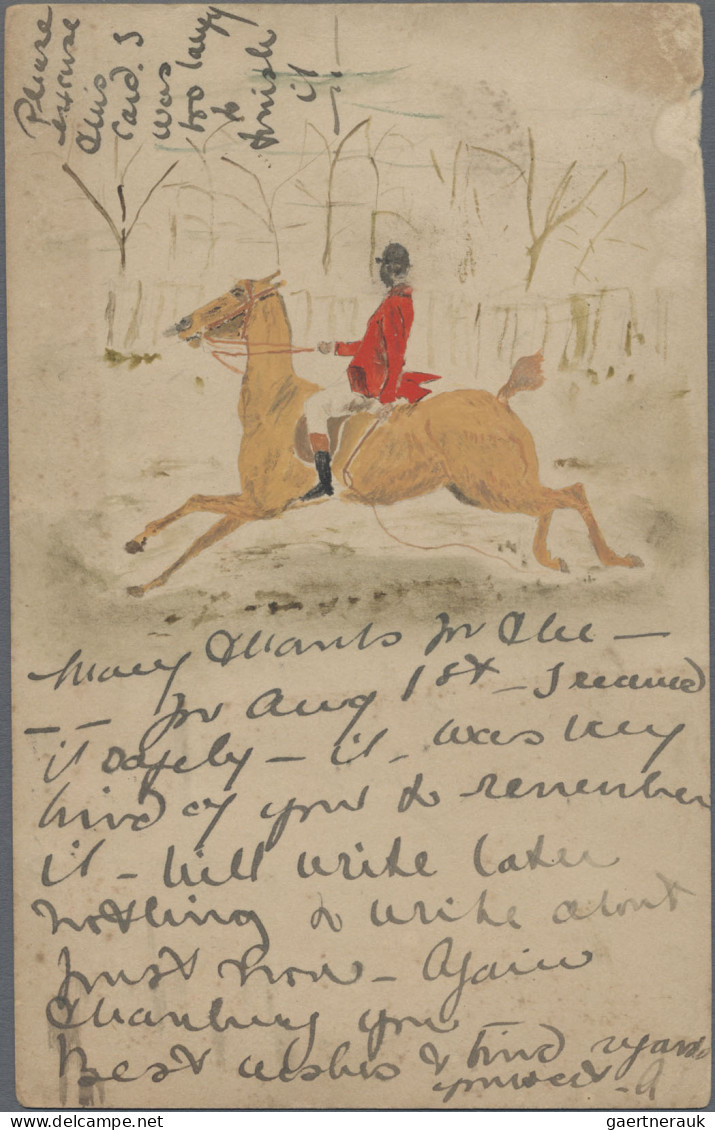 Please
excuse
this
card. I
was
too lazy
to
finish
it
Many thanks for the —
— — for Aug 1st — I received
it safely — it was very
kind of you to remember
it — Will write later
nothing to write about
just now — Again
thanking you
Best wishes & kind regards
yourself - A
gaertnerauk